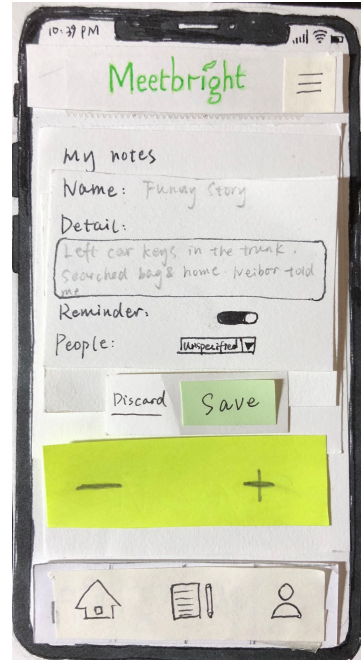 10:39 PM
Meetbright
My notes
Name: Funny Story
Detail:
Left car keys in the trunk.
Searched bag & home. Neibor told
me
Reminder:
People: Unspecified
Discard Save
— +